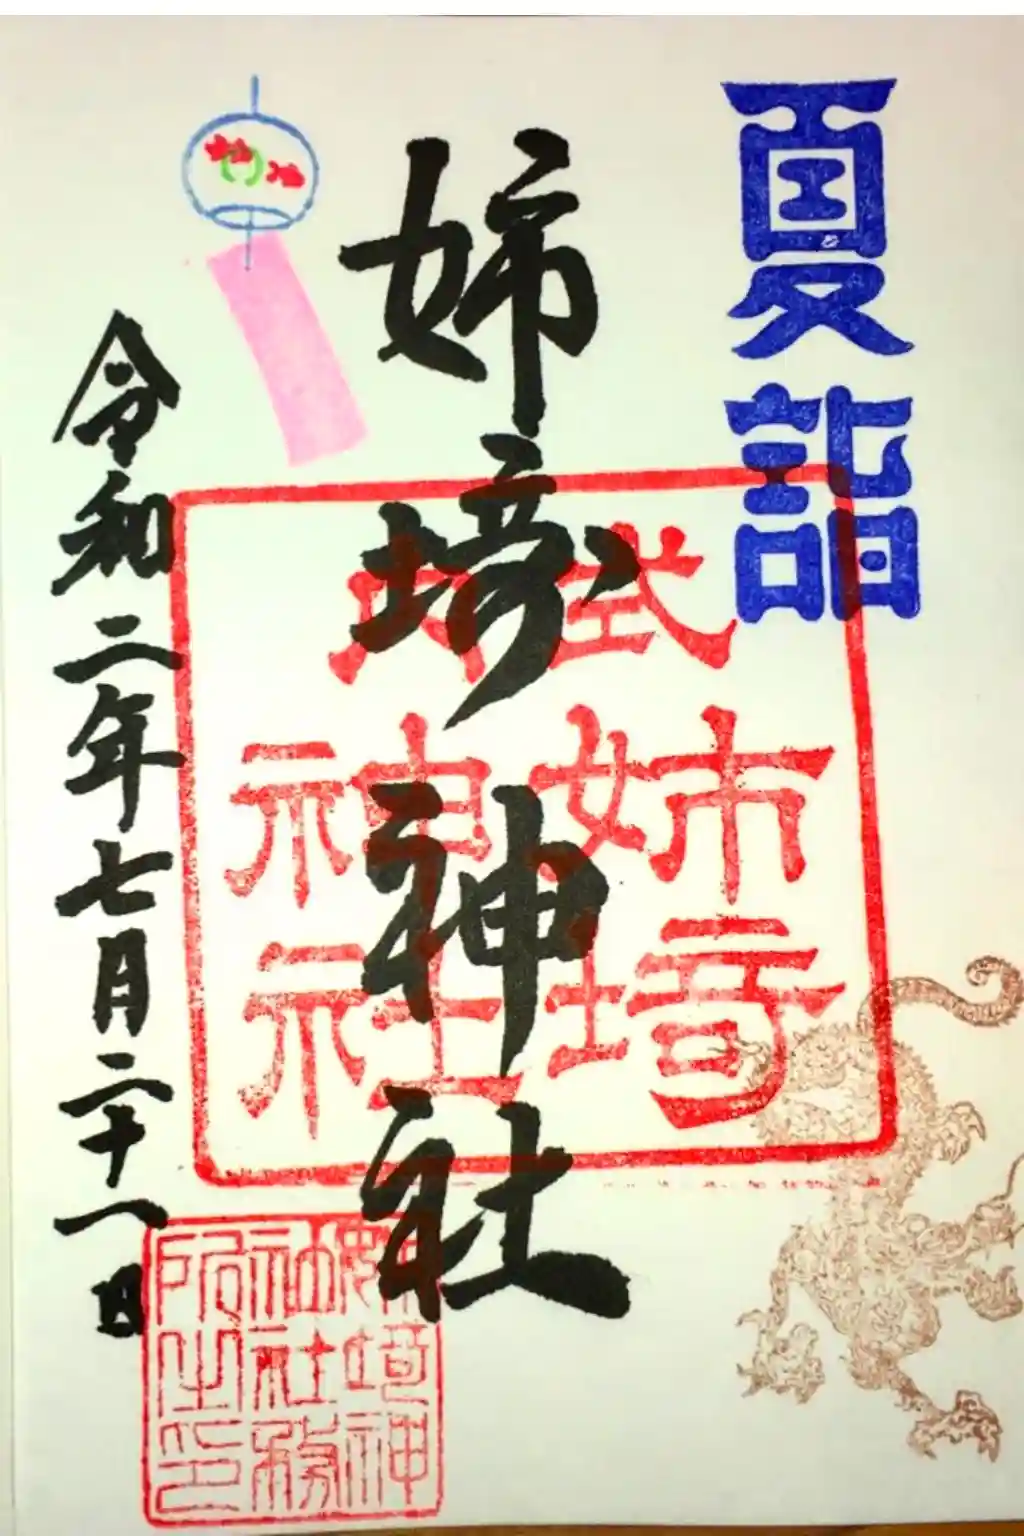 夏詣
姉埼神社
式内
姉埼
神社
令和二年七月二十一日
姉埼神
社務
所之印